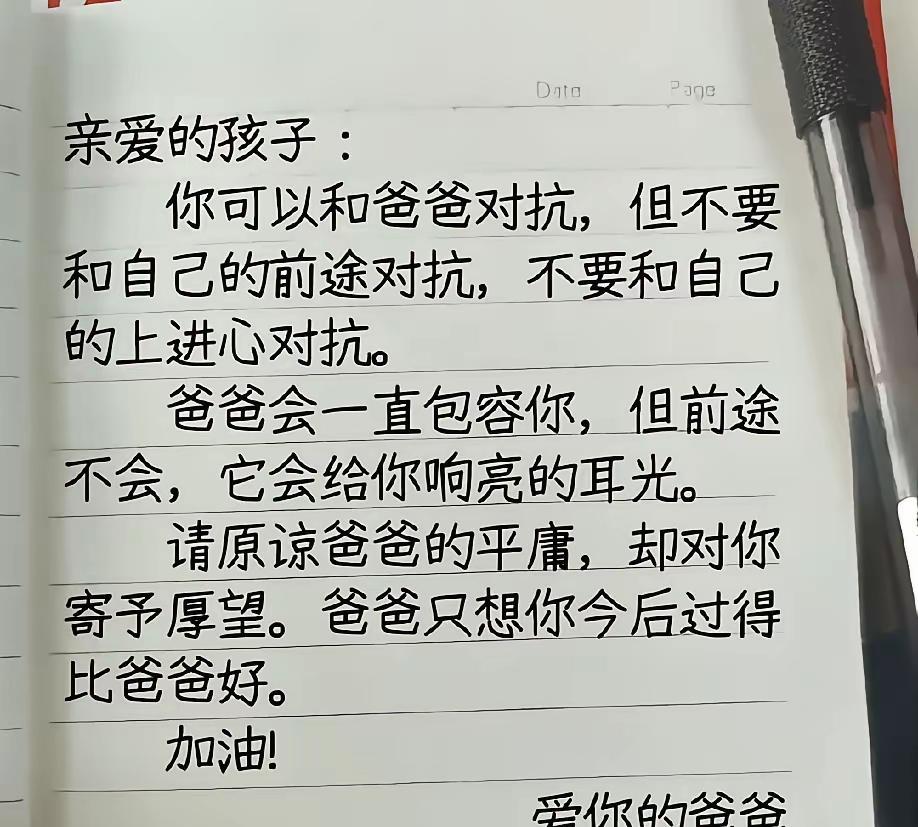 Date Page
亲爱的孩子：
你可以和爸爸对抗，但不要
和自己的前途对抗，不要和自己
的上进心对抗。
爸爸会一直包容你，但前途
不会，它会给你响亮的耳光。
请原谅爸爸的平庸，却对你
寄予厚望。爸爸只想你今后过得
比爸爸好。
加油！
爱你的爸爸